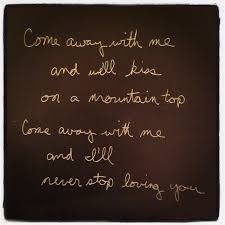 Come away with me
and we'll kiss
on a mountain top
Come away with me
and I'll
never stop loving you